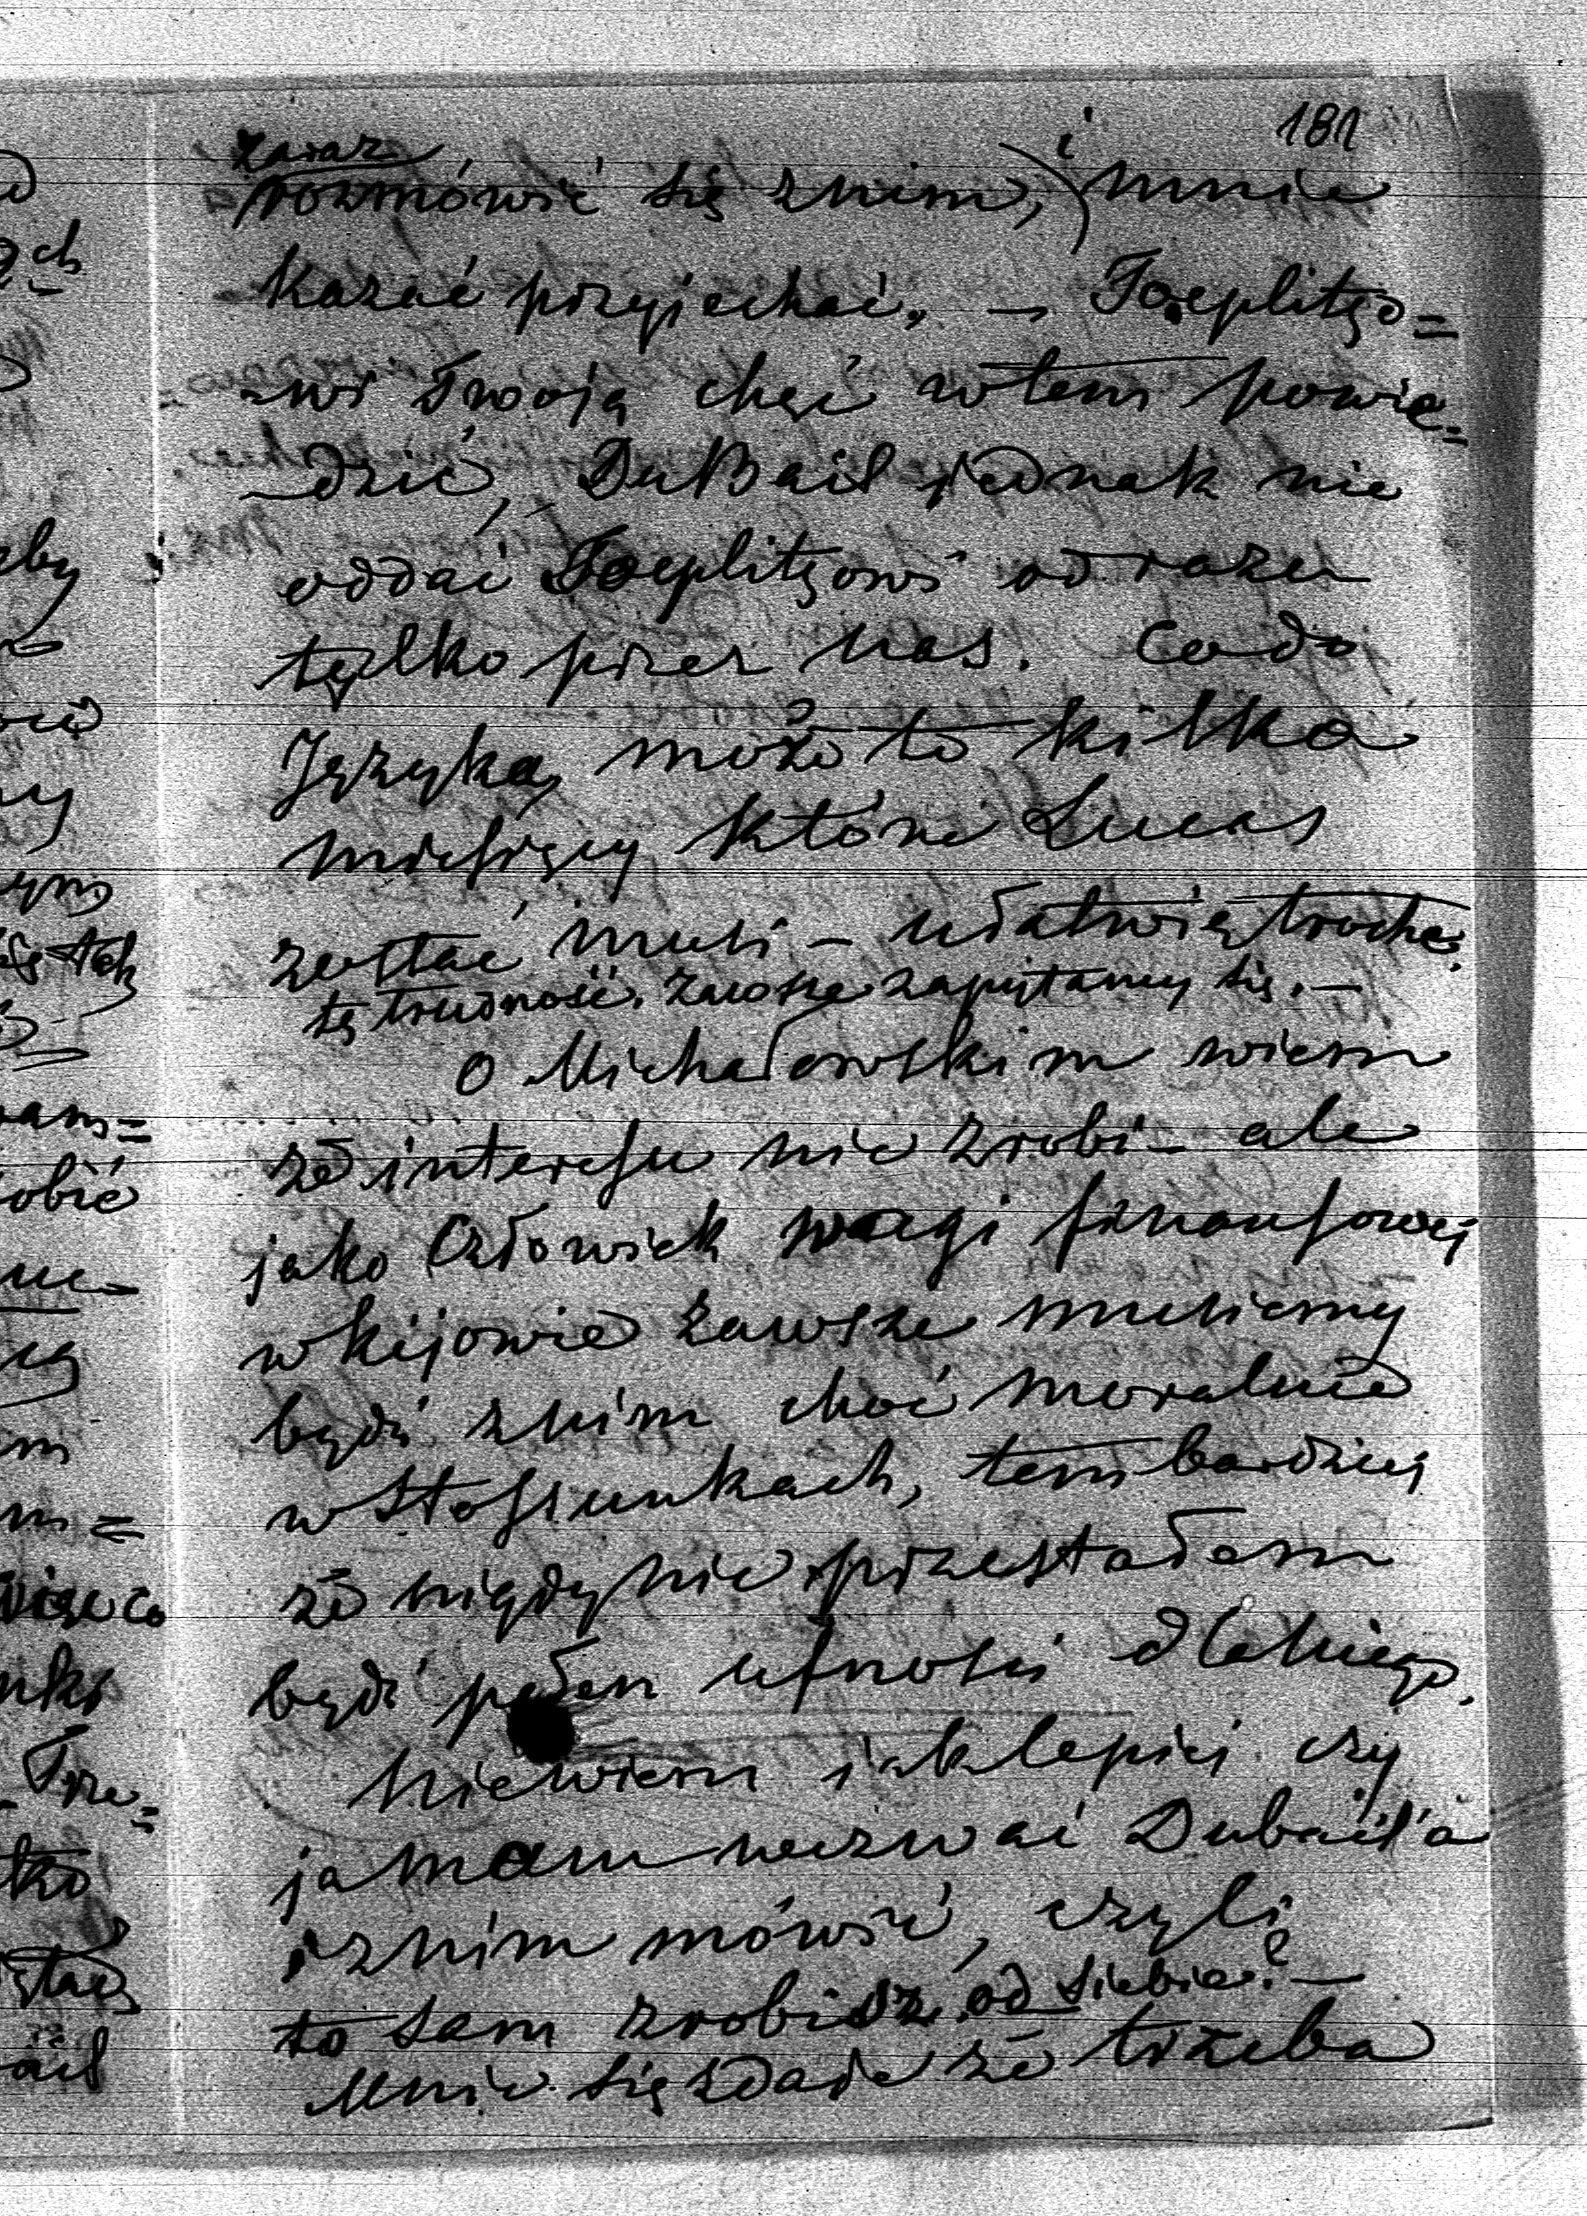 181
zaraz
rozmówić się z nim, i mnie
kazać przyjechać. — Toeplitzo=
-wi swoją chęć w tem powie=
-dzić, DuBail jednak nie
oddać Toeplitzowi od razu
tylko przez nas. Co do
Języka, może to kilka
miesięcy które Lucas
zostać musi — ułatwią trochę
tę trudność. Zawsze zapytamy się. —
O Michałowskim wiem
że interesu nie zrobi — ale
jako człowiek wagi finansowej
w Kijowie zawsze musiemy
bydź z nim choć moralnie
w stossunkach, tem bardziej
że nigdy nie przestałem
bydź pełen ufności dla niego.
Niewiem jak lepiej czy
ja mam wezwać Dubail'a
i z nim mówić, czyli
to sam zrobisz od siebie? —
Mnie się zdaje że trzeba